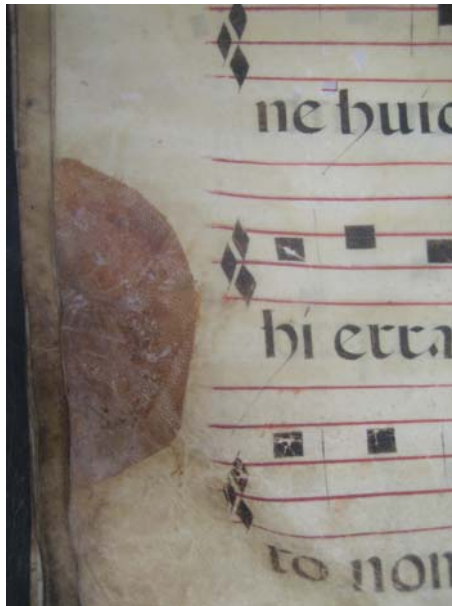 ne huic
hi erra
to non